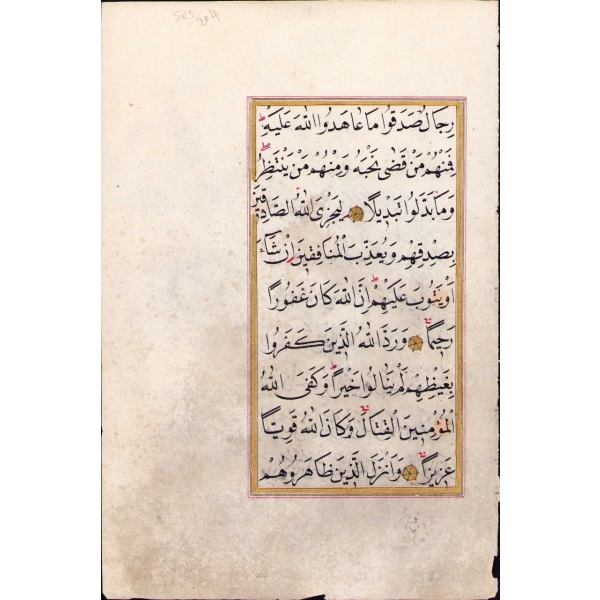 585/204
رِجَالٌ صَدَقُوا مَا عَاهَدُوا اللّٰهَ عَلَيْهِ
فَمِنْهُمْ مَنْ قَضٰى نَحْبَهُ وَمِنْهُمْ مَنْ يَنْتَظِرُ
وَمَا بَدَّلُوا تَبْدِيلًا لِيَجْزِىَ اللّٰهُ الصَّادِقِينَ
بِصِدْقِهِمْ وَيُعَذِّبَ الْمُنَافِقِينَ اِنْ شَاءَ
اَوْ يَتُوبَ عَلَيْهِمْ اِنَّ اللّٰهَ كَانَ غَفُورًا
رَحِيمًا وَرَدَّ اللّٰهُ الَّذِينَ كَفَرُوا
بِغَيْظِهِمْ لَمْ يَنَالُوا خَيْرًا وَكَفَى اللّٰهُ
الْمُؤْمِنِينَ الْقِتَالَ وَكَانَ اللّٰهُ قَوِيًّا
عَزِيزًا وَاَنْزَلَ الَّذِينَ ظَاهَرُوهُمْ